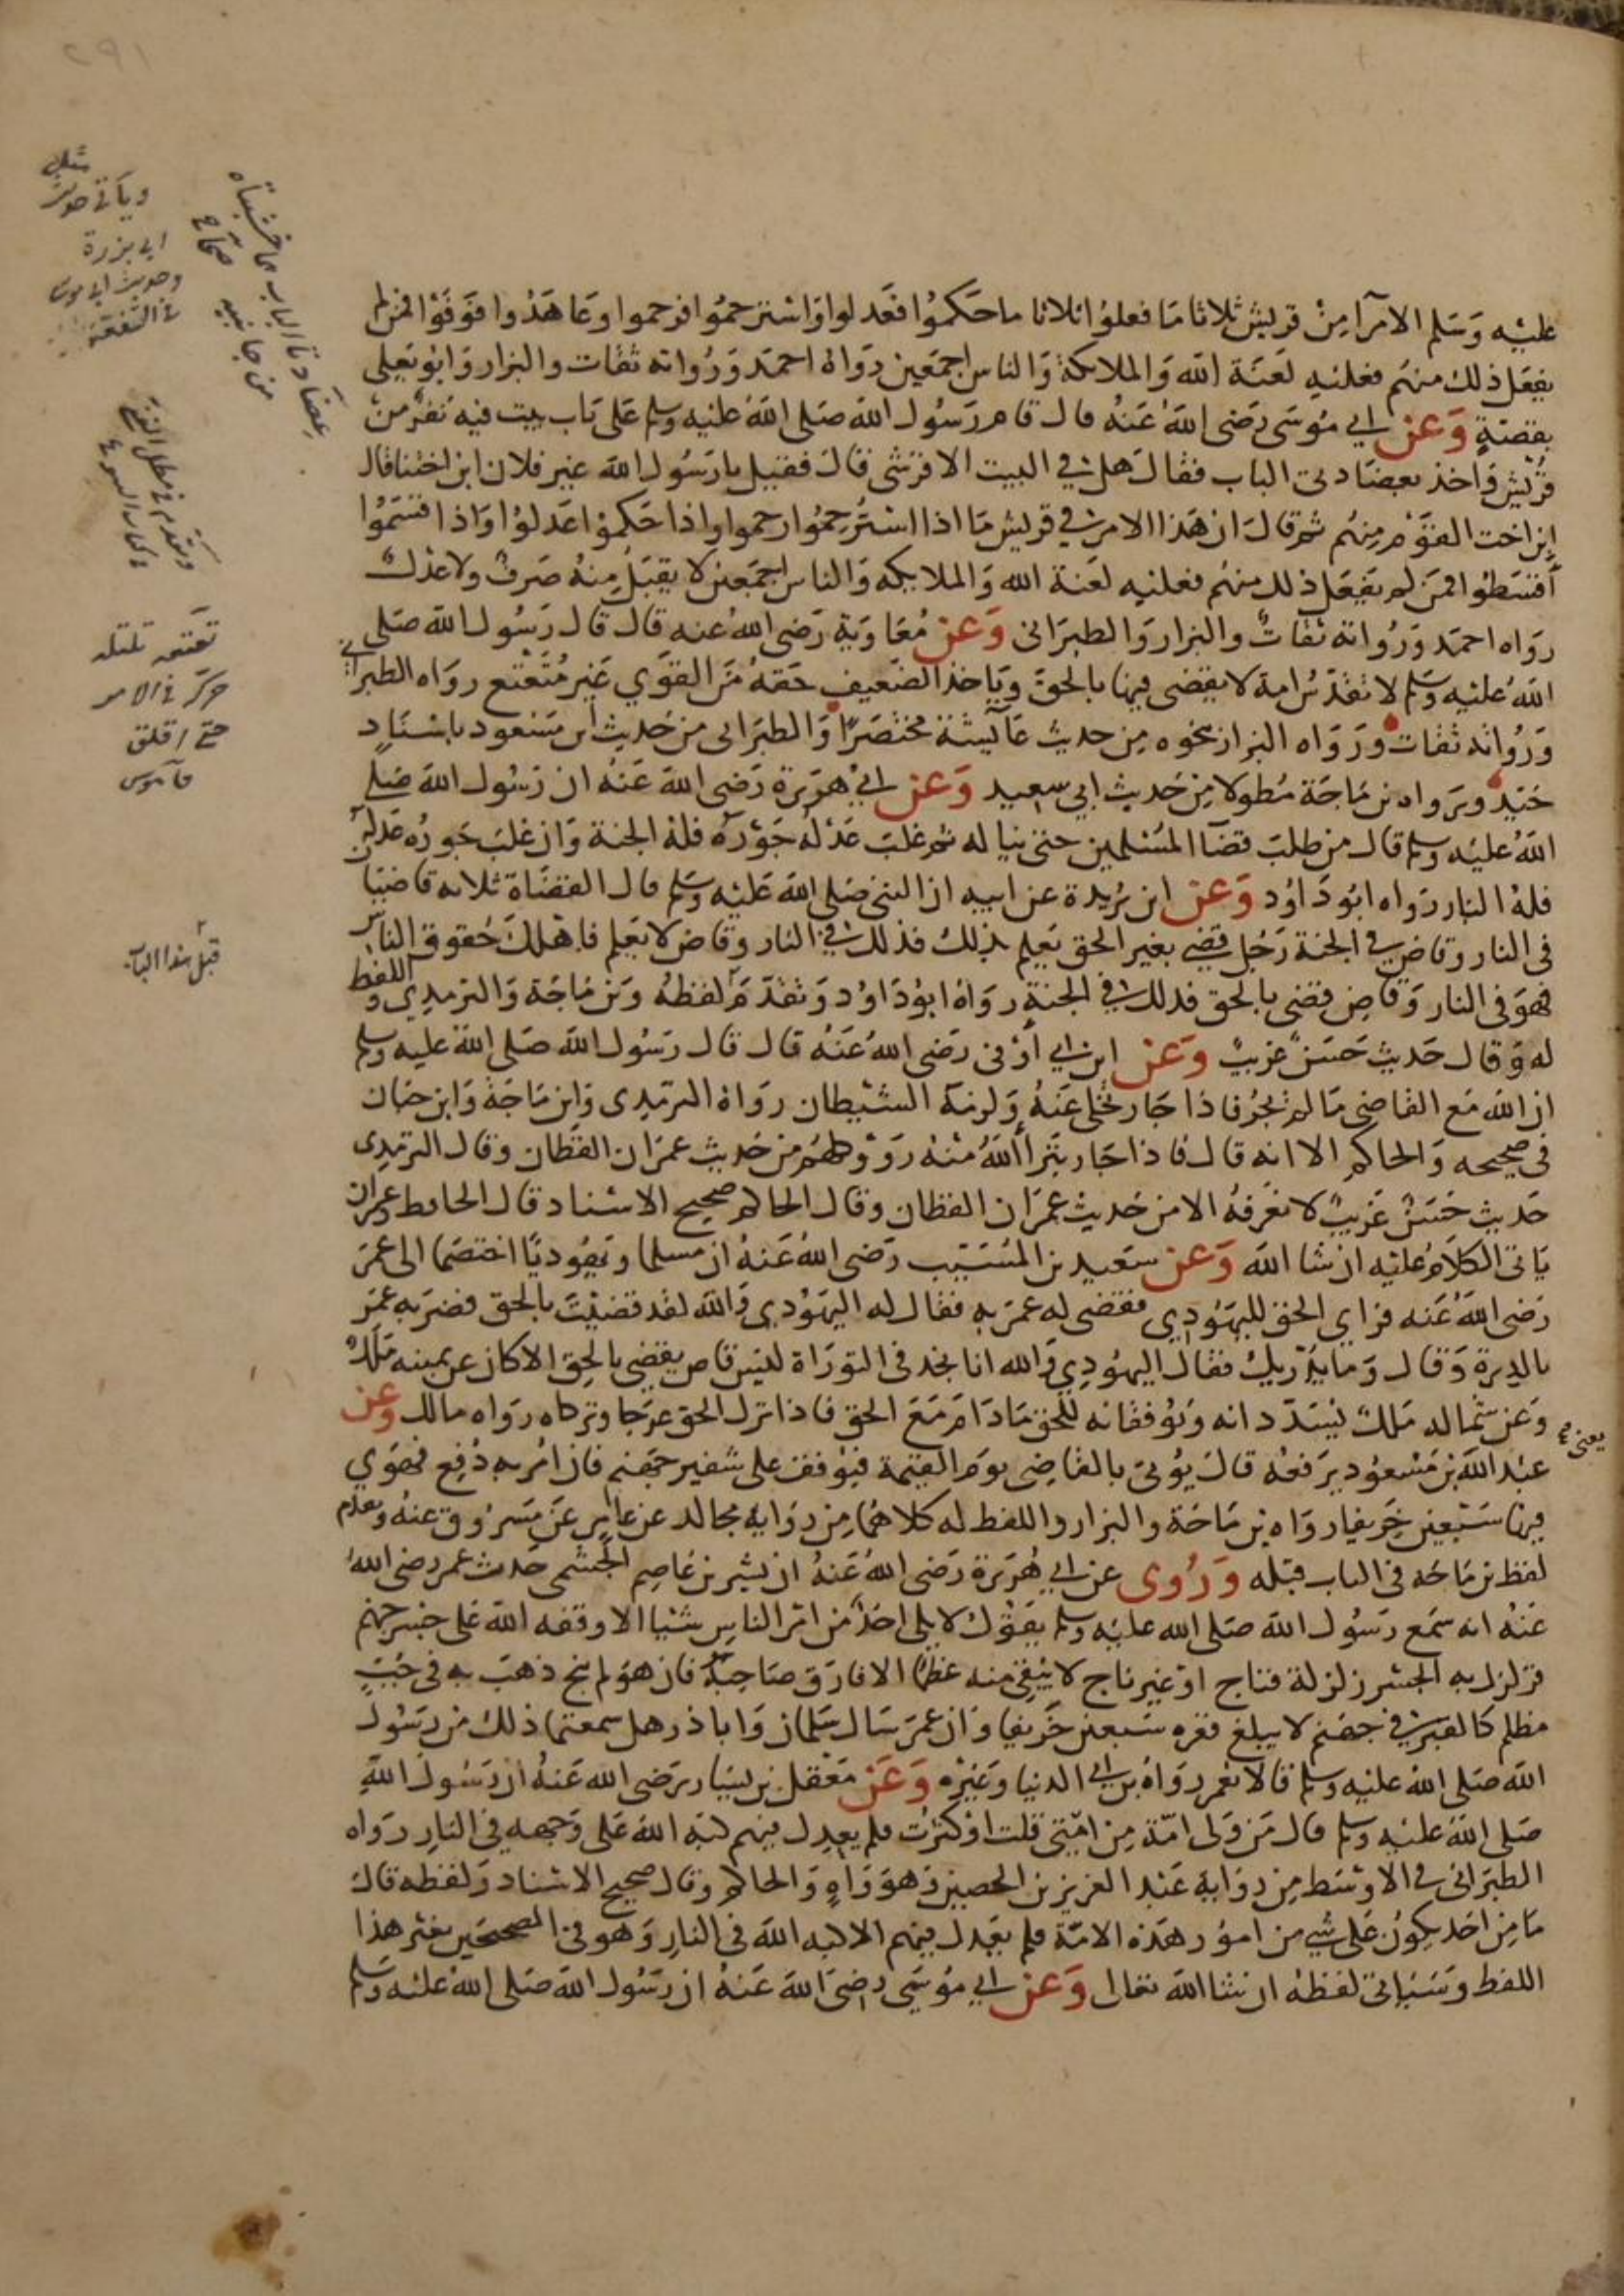 ٢٩١
عليه وسلم الامرا من قريش ثلاثا ما فعلوا ثلاثا ما حكموا فعدلوا واسترحموا فرحموا وعاهدوا فوفوا فمن لم
يفعل ذلك منهم فعليه لعنة الله والملائكة والناس اجمعين رواه احمد ورواته ثقات والبزار وابو يعلى
بقصة وعن ابي موسى رضى الله عنه قال قام رسول الله صلى الله عليه وسلم على باب بيت فيه نفر من
قريش واخذ بعضادتى الباب فقال هل في البيت الا قرشى قال فقيل يا رسول الله غير فلان ابن اختنا فقال
ابن اخت القوم منهم ثم قال ان هذا الامر في قريش ما اذا استرحموا رحموا واذا حكموا عدلوا واذا قسموا
اقسطوا فمن لم يفعل ذلك منهم فعليه لعنة الله والملايكه والناس اجمعين لا يقبل منه صرف ولا عدل
رواه احمد ورواته ثقات والبزار والطبرانى وعن معاوية رضى الله عنه قال قال رسول الله صلى
الله عليه وسلم لا تقدس امة لا يقضى فيها بالحق وياخذ الضعيف حقه من القوي غير متعتع رواه الطبراني
ورواته ثقات ورواه البزار بنحوه من حديث عائيشة مختصرا والطبرانى من حديث ابن مسعود باسناد
جيد ورواه بن ماجة مطولا من حديث ابي سعيد وعن ابي هريرة رضى الله عنه ان رسول الله صلى
الله عليه وسلم قال من طلب قضا المسلمين حتى يناله ثم غلب عدله جوره فله الجنة وان غلب جوره عدله
فله النار رواه ابو داود وعن ابن بريدة عن ابيه ان النبى صلى الله عليه وسلم قال القضاة ثلاثه قاضيان
فى النار وقاض في الجنة رجل قضي بغير الحق يعلم بذلك فذلك في النار وقاض لا يعلم فاهلك حقوق الناس
فهو فى النار وقاض قضى بالحق فذلك في الجنة رواه ابو داود وتقدم لفظه وبن ماجة والترمدي واللفظ
له وقال حديث حسن غريب وعن ابن ابي اوفى رضى الله عنه قال قال رسول الله صلى الله عليه وسلم
ان الله مع القاضى ما لم يجر فاذا جار تخلى عنه ولزمه الشيطان رواه الترمدى وابن ماجة وابن حبان
فى صحيحه والحاكم الا انه قال فاذا جار تبرا الله منه رووه كلهم من حديث عمران القطان وقال الترمدى
حديث حسن غريب لا نعرفه الا من حديث عمران القطان وقال الحاكم صحيح الاسناد قال الحافظ وعمران
ياتى الكلام عليه ان شا الله وعن سعيد بن المسيب رضى الله عنه ان مسلما ويهوديا اختصما الى عمر
رضى الله عنه فراي الحق لليهودي فقضى له عمر به فقال له اليهودي والله لقد قضيت بالحق فضربه عمر
بالدرة وقال وما يدريك فقال اليهودي والله انا نجد فى التوراة ليس قاض يقضى بالحق الا كان عن يمينه ملك
وعن شماله ملك يسددانه ويوفقانه للحق ما دام مع الحق فاذا ترك الحق عرجا وتركاه رواه مالك وعن
عبد الله بن مسعود يرفعه قال يوتى بالقاضى يوم القيمة فيوقف على شفير جهنم فان امر به دفع فهوي
فيها سبعين خريفا رواه بن ماجة والبزار واللفظ له كلاهما من رواية مجالد عن عامر عن مسروق عنه وتقدم
لفظ بن ماجه فى الباب قبله وروى عن ابي هريرة رضى الله عنه ان بشر بن عاصم الجشمى حدث عمر رضى الله
عنه انه سمع رسول الله صلى الله عليه وسلم يقول لا يلى احد من امر الناس شيا الا وقفه الله على جسر جهنم
فزلزل به الجسر زلزلة فناج او غير ناج لا يبقى منه عظم الا فارق صاحبه فان هو لم ينج ذهب به فى جب
مظلم كالقبر في جهنم لا يبلغ قعره سبعين خريفا وان عمر سال سلمان وابا ذر هل سمعتما ذلك من رسول
الله صلى الله عليه وسلم قالا نعم رواه بن ابي الدنيا وغيره وعن معقل بن يسار رضى الله عنه ان رسول الله
صلى الله عليه وسلم قال من ولى امة من امتى قلت او كثرت فلم يعدل فيهم كبه الله على وجهه فى النار رواه
الطبرانى فى الاوسط من رواية عبد العزيز بن الحصين وهو واه والحاكم وقال صحيح الاسناد ولفظه قال
ما من احد يكون على شي من امور هذه الامة فلم يعدل فيهم الا كبه الله فى النار وهو فى الصحيحين بغير هذا
اللفظ وسياتى لفظه ان شا الله تعالى وعن ابي موسى رضى الله عنه ان رسول الله صلى الله عليه وسلم
وياتى حديث
ابي برزة
وحديث ابي موسى
عضادتا الباب هما خشبتاه
من جانبيه صحاح
تعتعه تلتله
حركه فى الامر
حتى اقلق
قاموس
قبل هذا الباب
يعنى